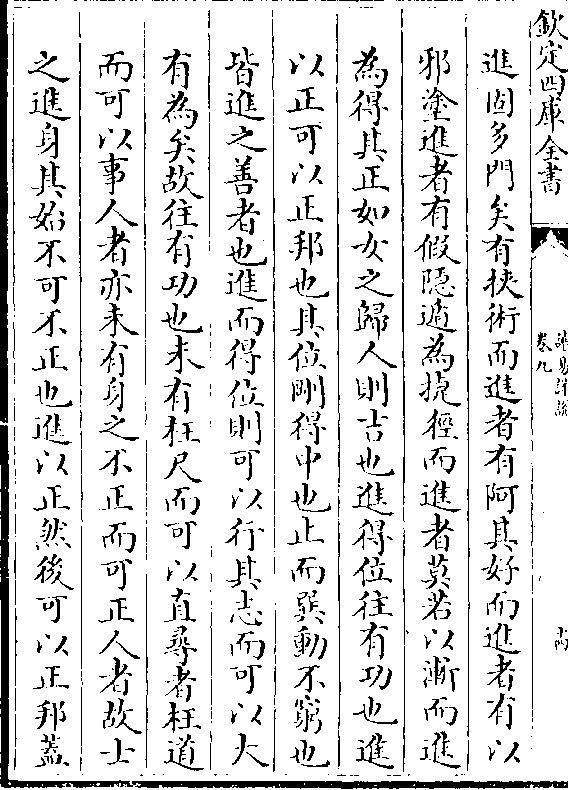 欽定四庫全書
讀易詳說
卷九
進固多門矣有挾術而進者有阿其好而進者有以
邪塗進者有假隱遁為捷徑而進者莫若以漸而進
為得其正如女之歸人則吉也進得位往有功也進
以正可以正邦也其位剛得中也止而巽動不窮也
皆進之善者也進而得位則可以行其志而可以大
有為矣故往有功也未有枉尺而可以直尋者枉道
而可以事人者亦未有身之不正而可正人者故士
之進身其始不可不正也進以正然後可以正邦蓋